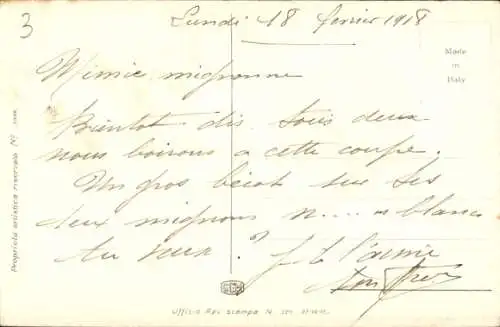 3
Lundi 18 fevrier 1918
Made
in
Italy
Mimie mignonne
Bientot dis tous deux
nous boirons a cette coupe.
Un gros bécot sur tes
deux mignons n.... blancs
tu veux ?
Je t'aime
Proprietà artistica riservata